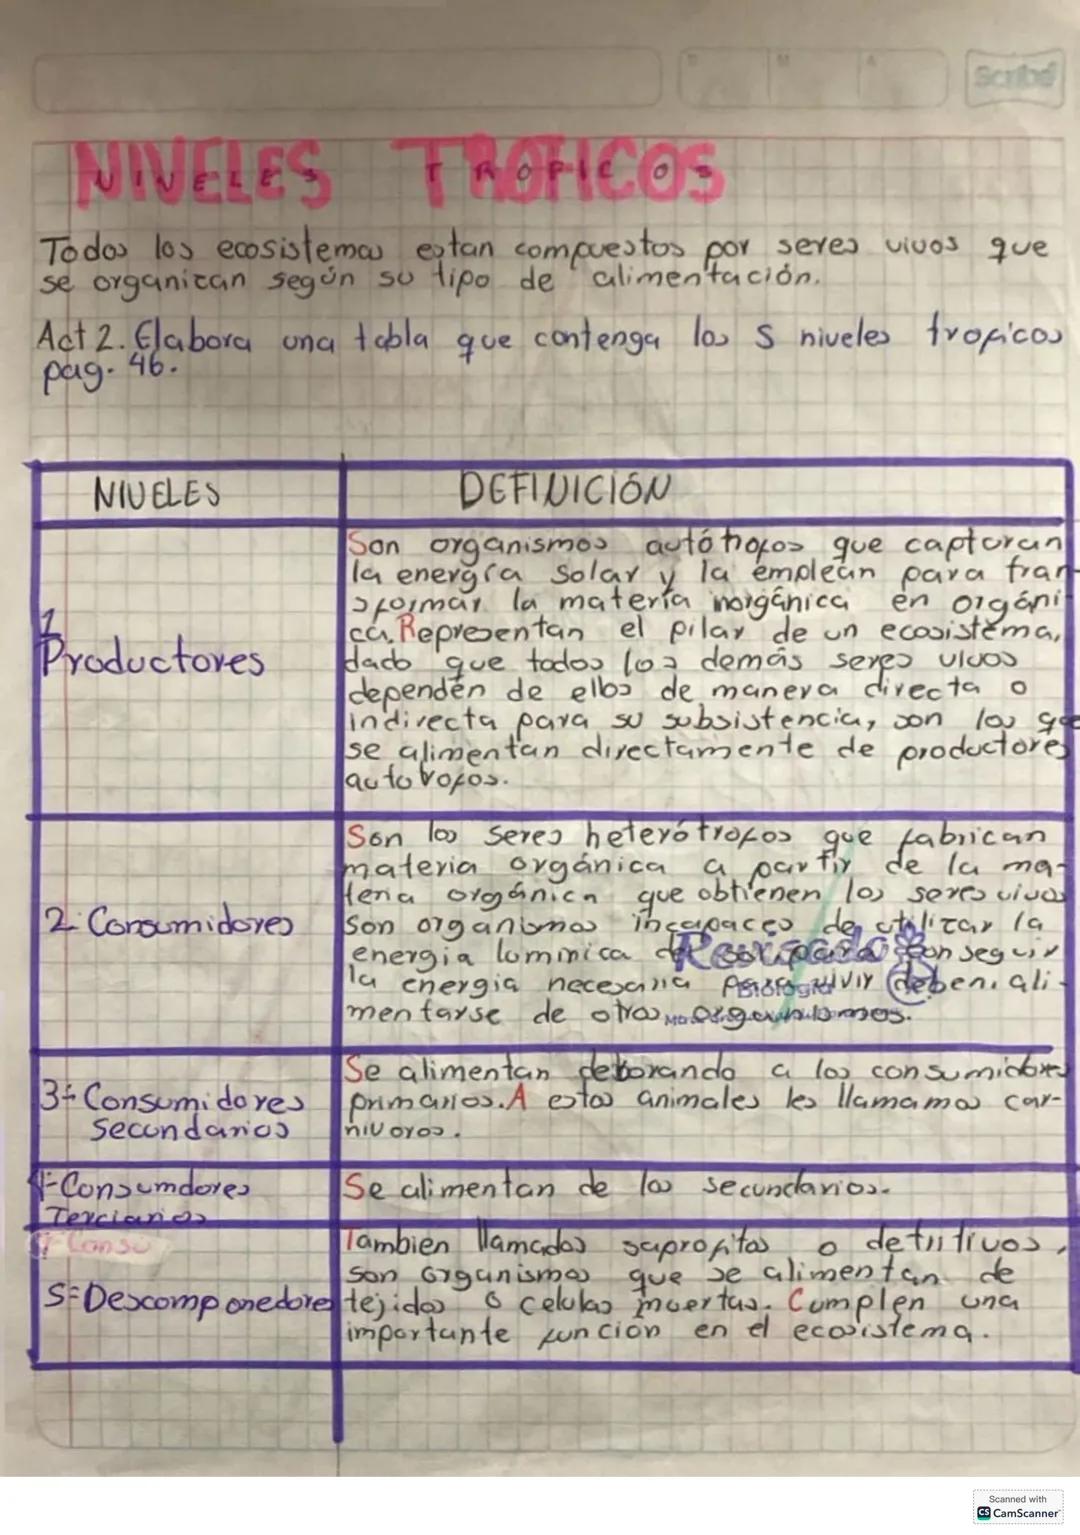 Scribe
NIVELES TROFICOS
NIVELES TROPICOS
Todos los ecosistemas estan compuestos por seres vivos que
se organizan según su tipo de alimentación.
Act 2. Elabora una tabla que contenga los 5 niveles troficos
pag. 46.
NIVELES
DEFINICIÓN
1
Productores
Son organismos autótrofos que capturan
la energía solar y la emplean para tran-
sformar la materia inorgánica en orgáni-
ca. Representan el pilar de un ecosistema,
dado que todos los demás seres vivos
dependen de ellos de manera directa o
indirecta para su subsistencia, son los que
se alimentan directamente de productores
autotrofos.
2. Consumidores
Son los seres heterótrofos que fabrican
materia orgánica a partir de la ma-
teria orgánica que obtienen los seres vivos
son organismos incapaces de utilizar la
energia luminica del sol para conseguir
la energia necesaria para vivir deben ali-
mentarse de otros organismos.
Revisado
Biología
3- Consumidores
Secundarios
Se alimentan deborando a los consumidores
primarios. A estos animales les llamamos car-
nivoros.
4-Consumdores
Terciarios
Se alimentan de los secundarios.
5-Descomponedores
Tambien llamados saprofitos o detritivos,
son organismos que se alimentan de
tejidos o celulas muertas. Cumplen una
importante función en el ecosistema.
Scanned with
CS CamScanner